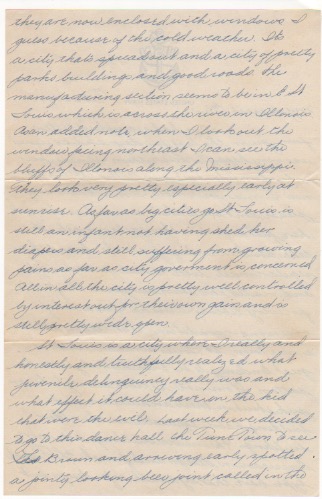 they are now enclosed with windows I
guess because of the cold weather. Its
a city thats spread out and a city of pretty
parks, buildings and good roads. The
manufacturing section seems to be in E St
Louis which is across the river in Illinois
As an added note, when I look out the
window facing northeast I can see the
bluffs of Illinois along the Mississippi
They look very pretty especially early at
sunrise. As far as big cities go St Louis is
still an infant not having shed her
diapers and still suffering from growing
pains as far as city goverment is concerned
All in all the city is pretty well controlled
by interest out for their own gain and is
still pretty wide open.
St Louis is a city where I really and
honestly and truthfully realized what
juvenile delinquency really was and
what effect it could have on the kid
that were the evils. Last week we decided
to go to this dance hall the Tune Town to see
Les Brown and arriving early spotted
a jointy looking beer joint called in the